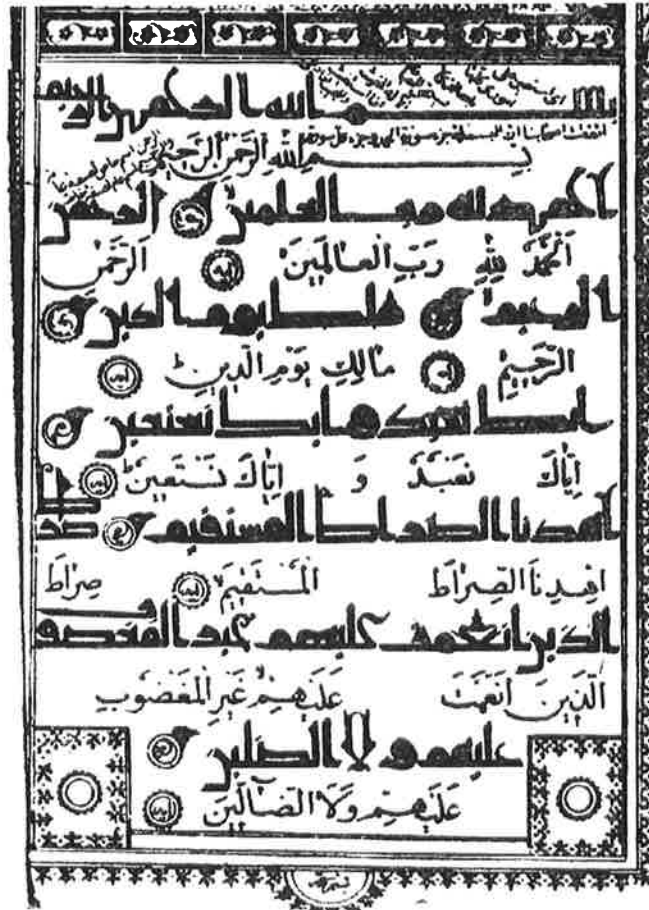 بسم الله الرحمن الرحيم
بِسْمِ اللهِ الرَّحْمٰنِ الرَّحِيمِ
الحمد لله رب العلمين الرحمن
اَلْحَمْدُ لِلّٰهِ رَبِّ الْعَالَمِينَ ايه اَلرَّحْمٰنِ
الرحيم ملك يوم الدين
الرَّحِيمِ ايه مَالِكِ يَوْمِ الدِّينِ ايه
اياك نعبد و اياك نستعين
اِيَّاكَ نَعْبُدُ وَ اِيَّاكَ نَسْتَعِينُ ايه
اهدنا الصراط المستقيم صراط
اهْدِنَا الصِّرَاطَ الْمُسْتَقِيمَ ايه صِرَاطَ
الذين انعمت عليهم غير المغضوب
الَّذِينَ اَنْعَمْتَ عَلَيْهِمْ غَيْرِ الْمَغْضُوبِ
عليهم و لا الضالين
عَلَيْهِمْ وَلَا الضَّالِّينَ ايه